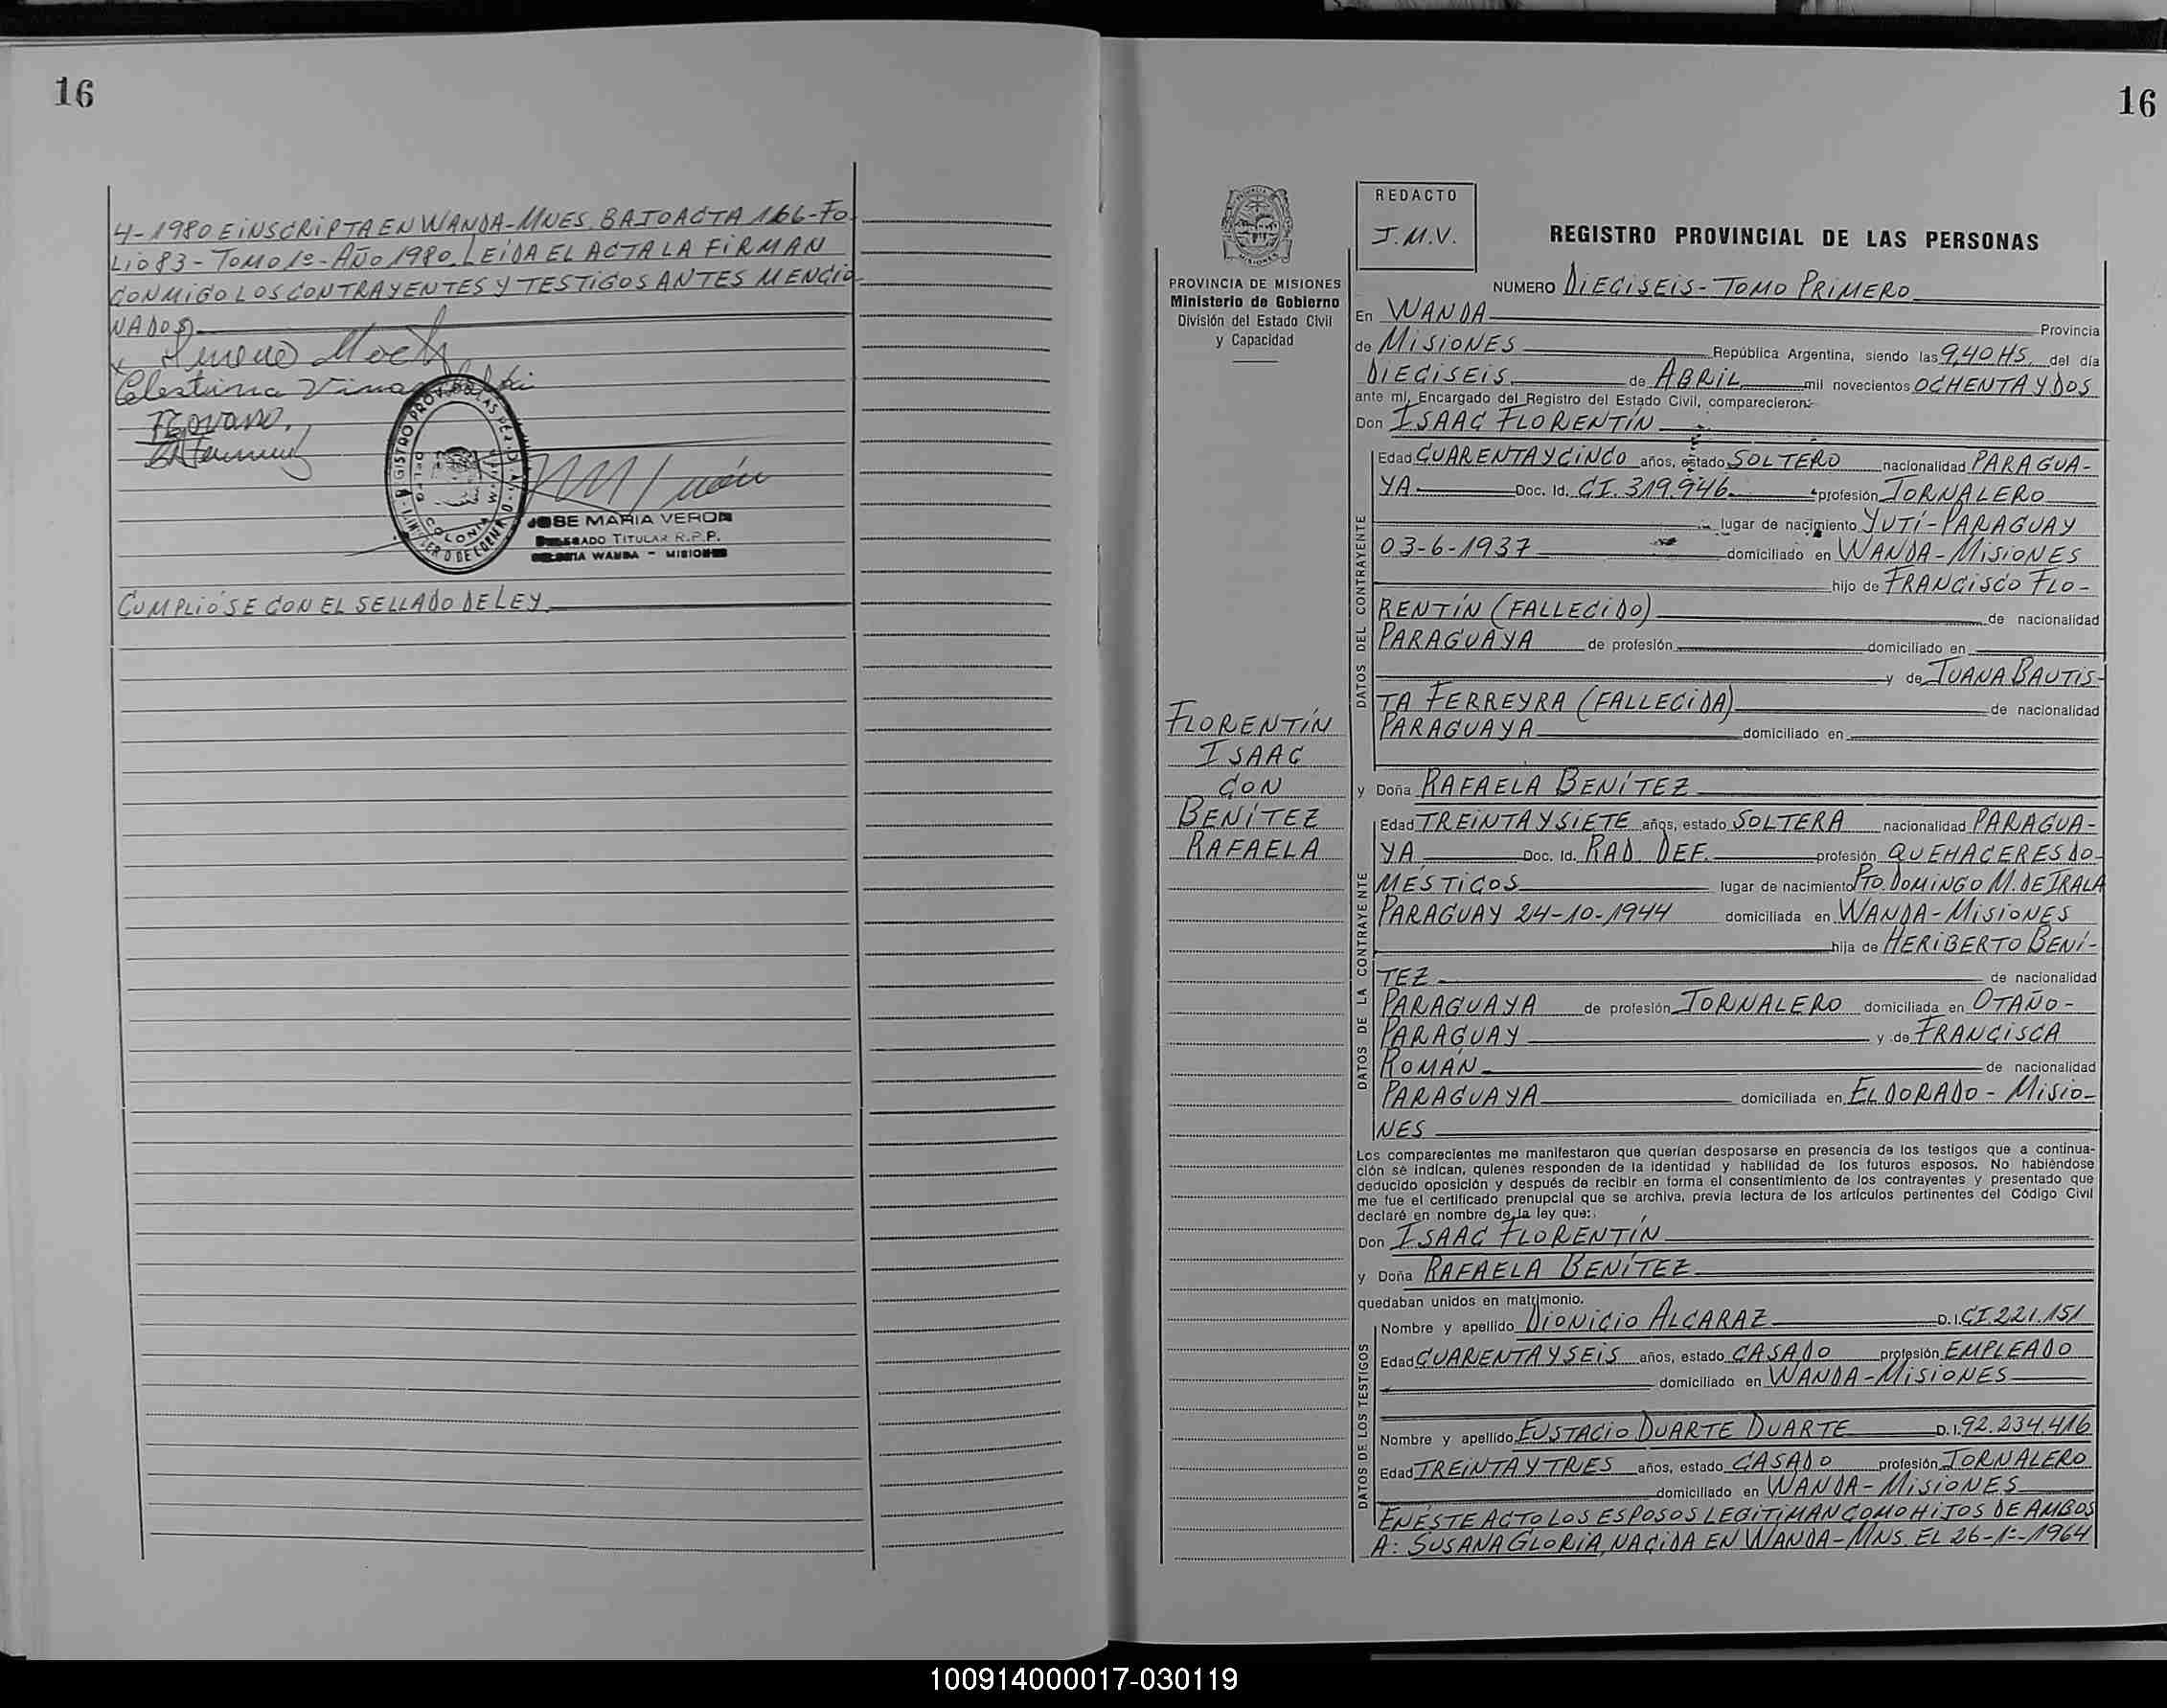 16
4-1980 E INSCRIPTA EN WANDA-MNES. BAJO ACTA 166-FO-
LIO 83-TOMO 1º-AÑO 1980. LEÍDA EL ACTA LA FIRMAN
CONMIGO LOS CONTRAYENTES Y TESTIGOS ANTES MENCIO-
NADOS
Celestina
JOSE MARIA VERON
DELEGADO TITULAR R.P.P.
COLONIA WANDA - MISIONES
CUMPLIÓSE CON EL SELLADO DE LEY.
16
PROVINCIA DE MISIONES
Ministerio de Gobierno
División del Estado Civil
y Capacidad
FLORENTÍN
ISAAC
CON
BENÍTEZ
RAFAELA
REDACTO
J.M.V.
REGISTRO PROVINCIAL DE LAS PERSONAS
NUMERO DIECISEIS-TOMO PRIMERO
En WANDA Provincia
de MISIONES República Argentina, siendo las 9,40 HS. del día
DIECISEIS de ABRIL mil novecientos OCHENTA Y DOS
ante mí, Encargado del Registro del Estado Civil, comparecieron:
Don ISAAC FLORENTÍN
DATOS DEL CONTRAYENTE
Edad CUARENTA Y CINCO años, estado SOLTERO nacionalidad PARAGUA-
YA Doc. Id. CI. 319.946 profesión JORNALERO
lugar de nacimiento YUTÍ-PARAGUAY
03-6-1937 domiciliado en WANDA-MISIONES
hijo de FRANCISCO FLO-
RENTÍN (FALLECIDO) de nacionalidad
PARAGUAYA de profesión domiciliado en
y de JUANA BAUTIS-
TA FERREYRA (FALLECIDA) de nacionalidad
PARAGUAYA domiciliado en
y Doña RAFAELA BENÍTEZ
DATOS DE LA CONTRAYENTE
Edad TREINTA Y SIETE años, estado SOLTERA nacionalidad PARAGUA-
YA Doc. Id. RAD. DEF. profesión QUEHACERES DO-
MÉSTICOS lugar de nacimiento PTO. DOMINGO M. DE IRALA
PARAGUAY 24-10-1944 domiciliada en WANDA-MISIONES
hija de HERIBERTO BENÍ-
TEZ de nacionalidad
PARAGUAYA de profesión JORNALERO domiciliada en OTAÑO-
PARAGUAY y de FRANCISCA
ROMÁN de nacionalidad
PARAGUAYA domiciliada en ELDORADO - MISIO-
NES
Los comparecientes me manifestaron que querían desposarse en presencia de los testigos que a continua-
ción se indican, quienes responden de la identidad y habilidad de los futuros esposos. No habiéndose
deducido oposición y después de recibir en forma el consentimiento de los contrayentes y presentado que
me fue el certificado prenupcial que se archiva, previa lectura de los artículos pertinentes del Código Civil
declaré en nombre de la ley que:
Don ISAAC FLORENTÍN
y Doña RAFAELA BENÍTEZ
quedaban unidos en matrimonio.
DATOS DE LOS TESTIGOS
Nombre y apellido DIONICIO ALCARAZ D.I. CI. 221.151
Edad CUARENTA Y SEIS años, estado CASADO profesión EMPLEADO
domiciliado en WANDA-MISIONES
Nombre y apellido EUSTACIO DUARTE DUARTE D.I. 92.234.416
Edad TREINTA Y TRES años, estado CASADO profesión JORNALERO
domiciliado en WANDA-MISIONES
EN ÉSTE ACTO LOS ESPOSOS LEGITIMAN COMO HIJOS DE AMBOS
A: SUSANA GLORIA, NACIDA EN WANDA-MNS. EL 26-1º-1964
100914000017-030119